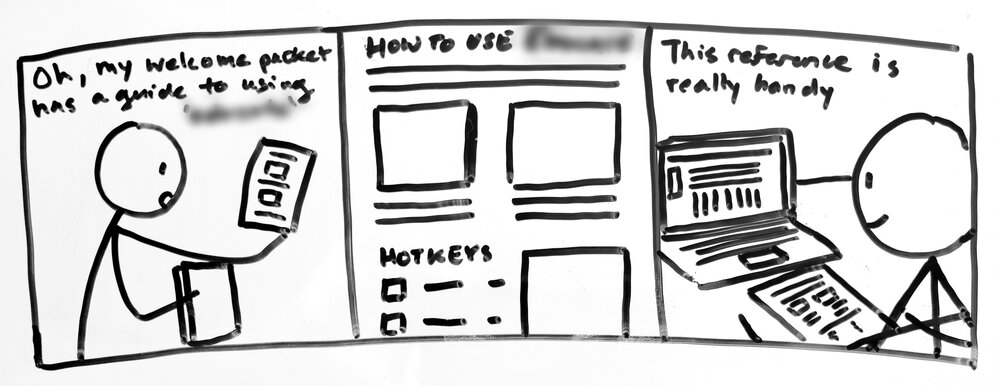 Oh, my welcome packet
has a guide to using
HOW TO USE
HOTKEYS
This reference is
really handy